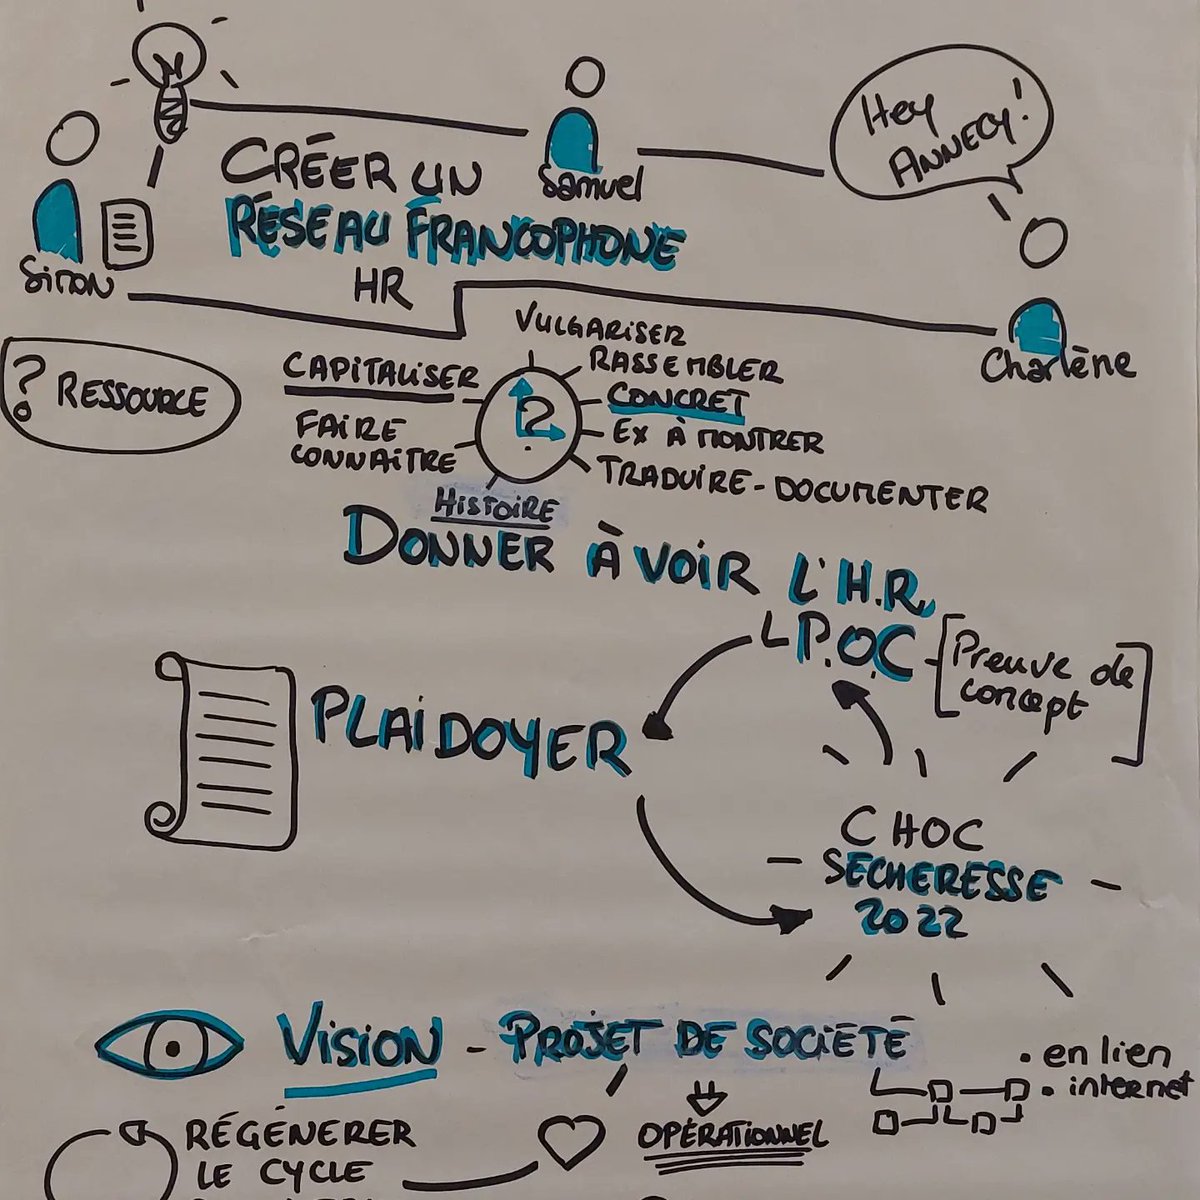 Hey
ANNECY!
CRÉER UN
Samuel
RÉSEAU FRANCOPHONE
Simon
HR
Charlène
VULGARISER
CAPITALISER
RASSEMBLER
? RESSOURCE
CONCRET
?
FAIRE
CONNAITRE
EX À MONTRER
TRADUIRE - DOCUMENTER
HISTOIRE
DONNER À VOIR L'H.R.
P.O.C
[Preuve de
concept]
PLAIDOYER
CHOC
SECHERESSE
2022
VISION - PROJET DE SOCIÉTÉ
• en lien
• internet
RÉGÉNERER
LE CYCLE
OPÉRATIONNEL